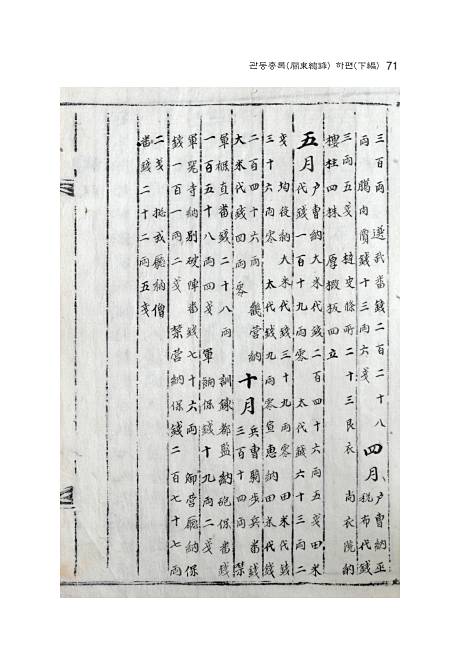 관동총록(關東總錄) 하편(下編) 71
三百兩 選武番錢二百二十八 四月 戶曹納正
兩 臈肉價錢十三兩六戔 稅布代錢
三兩五戔 條所二十三艮衣 尙衣院納
樓柱四株 厚椴板四立
五月 戶曹納大米代錢二百四十六兩五戔田米
代錢一百十九兩零 太代錢六十三兩二
戔 均役納大米代錢三十九兩零 田米代錢
三十六兩零 太代錢九兩零宣惠納田米代錢
二百四十六兩 畿營納 十月 兵曹騎步兵番錢
大米代錢四兩零 三百十四兩 禁
軍 直番錢二十八兩 訓鍊都監納砲保番錢
一百五十八兩四戔 軍餉保錢十九兩二戔
軍器寺納別破陣番錢七十六兩 御營廳納保
錢一百一兩二戔 禁營納保錢二百七十七兩
二戔 摠戎廳納僧
番錢二十二兩五戔